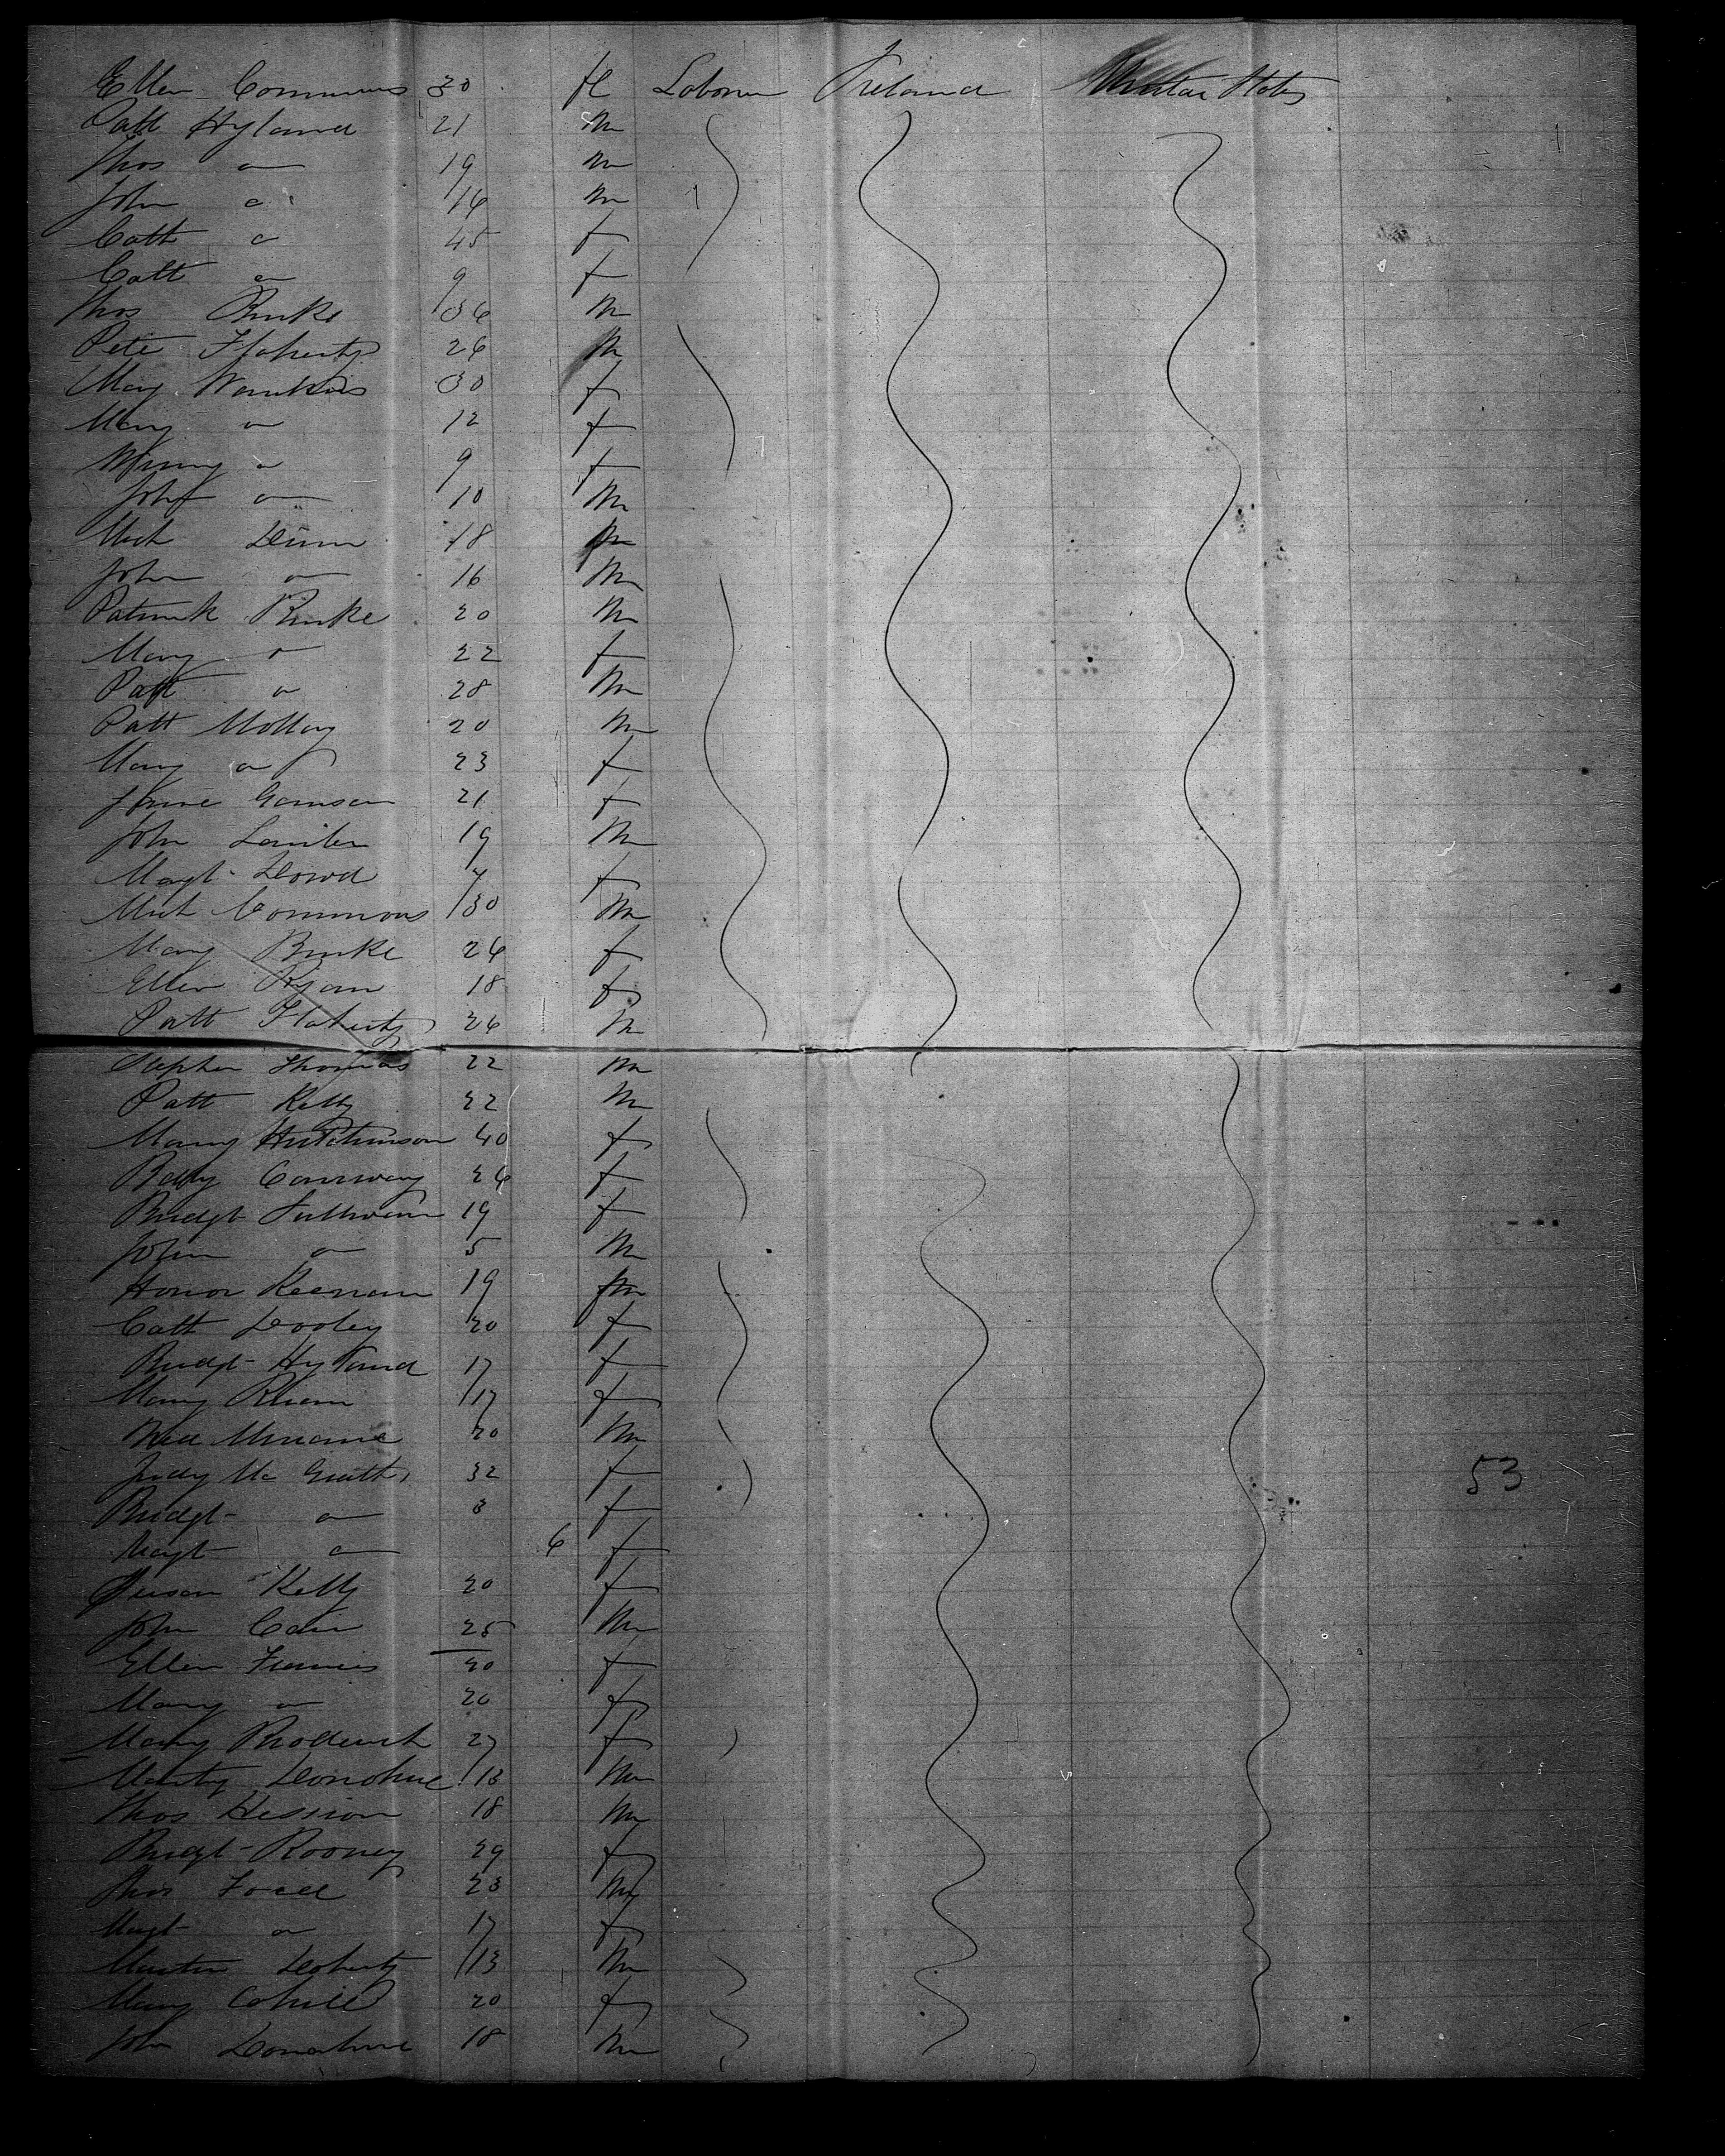 Ellen Commons 30 f Laborer Ireland United States
Patt Hyland 21 m
Thos " 19 m
John " 16 m
Cath " 45 f
Cath " 9 f
Thos Burke 36 m
Pete Flaherty 26 m
Mary 30 f
Mary " 12 f
Winny " 9 f
John " 10 m
Mich Dunn 18 m
John " 16 m
Patrick Burke 20 m
Mary " 22 f
Patt " 28 m
Patt Molloy 20 m
Mary " 23 f
21 f
John 19 m
Magt Dowd f
Mich Commons 30 m
Mary Burke 26 f
Ellen Ryan 18 f
Patt Flaherty 26 m
Stephen Thomas 22 m
Patt Kelly 22 m
Mary Hutchinson 40 f
Conway 26 f
Bridgt Sullivan 19 f
John " 5 m
Honor Keenan 19 f
Cath Dooley 20 f
Bridgt Hyland 17 f
Mary 17 f
20 m
Judy Mc Grath 32 f
Bridgt " 3 f
Magt " 6 f
Susan Kelly 20 f
John Cain 25 m
Ellen Francis 20 f
Mary " 20 f
Mary Broderick 27 f
Donohue 13 m
Thos Hession 18 m
Bridgt Rooney 29 f
Thos 23 m
Magt " 17 f
Martin Doherty 13 m
Mary Cahill 20 f
John Donohue 18 m
53